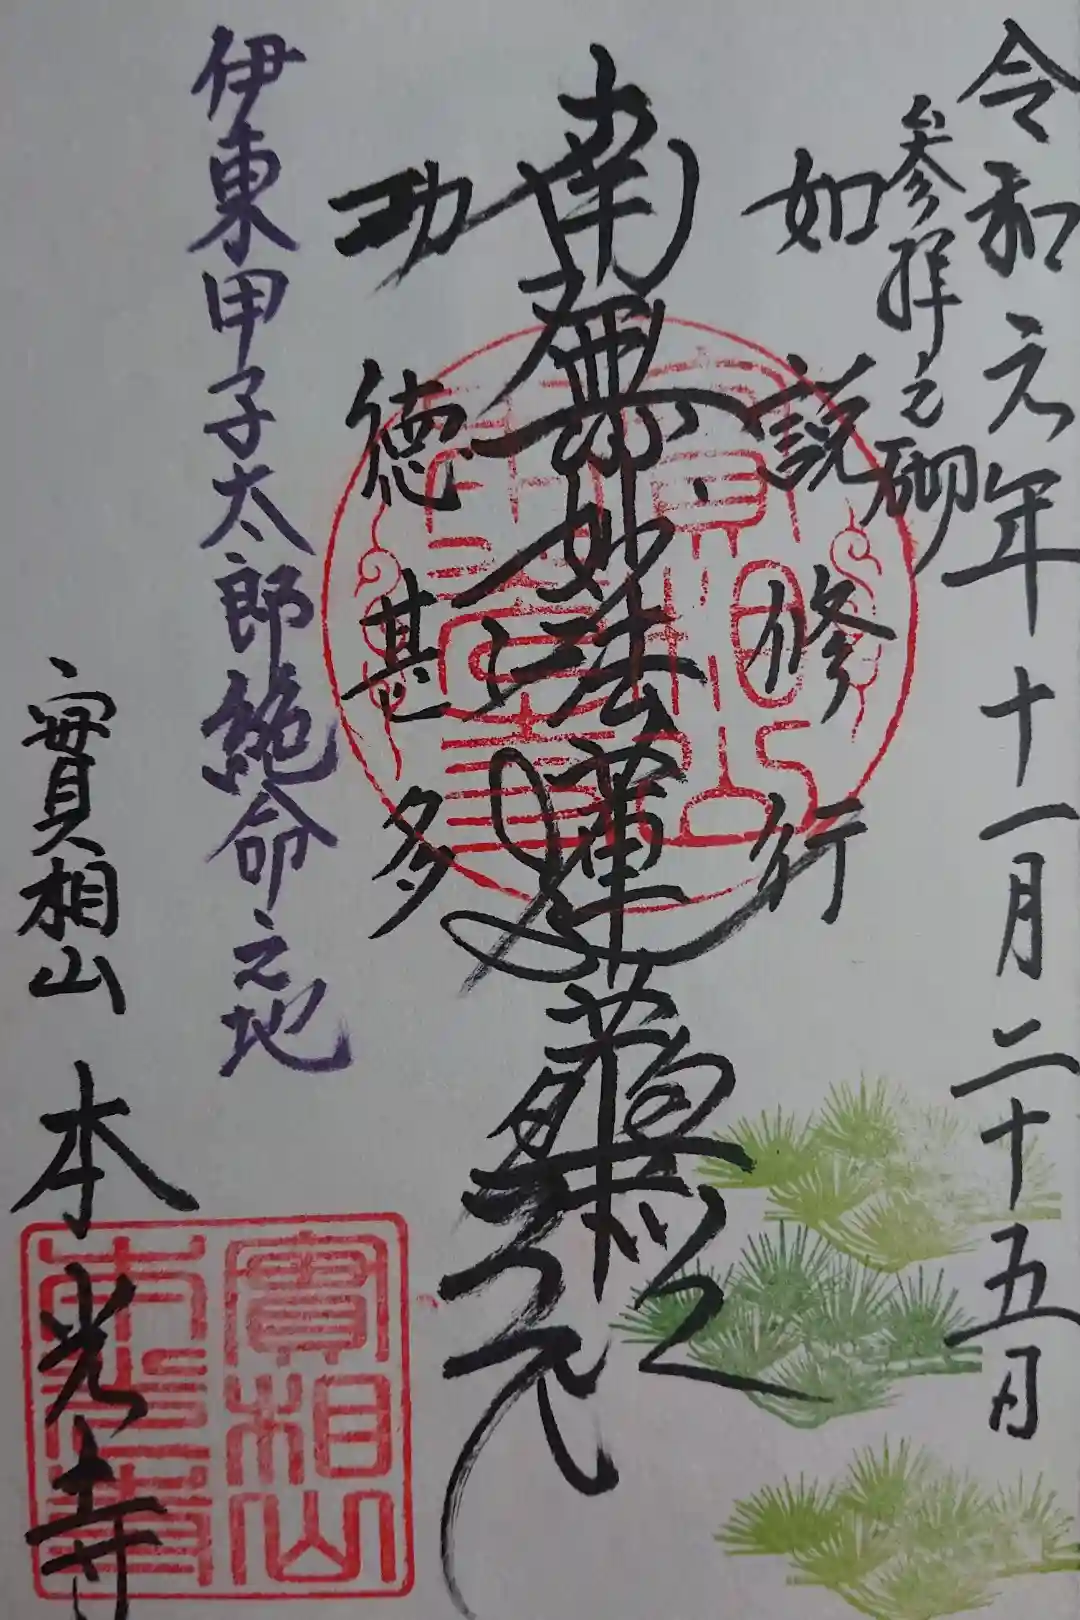 令和元年十一月二十五日
参拝之砌
如説修行
南無妙法蓮華経
功徳甚多
伊東甲子太郎絶命之地
實相山 本光寺
實相山
本光寺